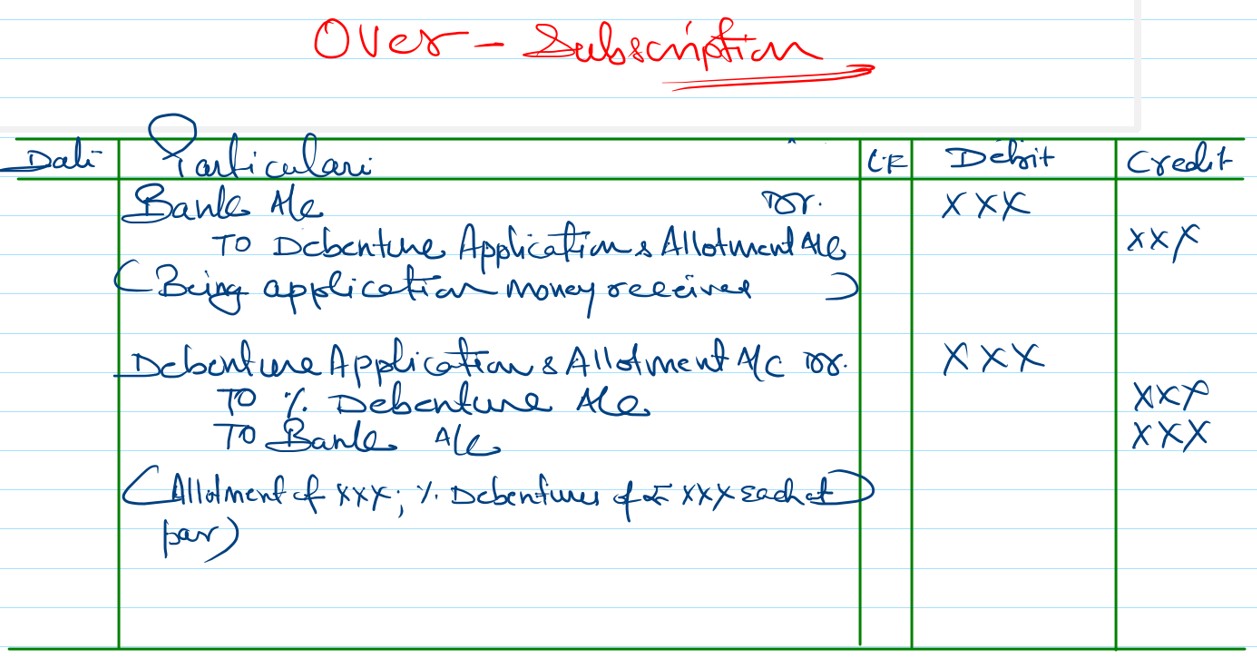 Over - Subscription
Date Particulars L.F Debit Credit
Bank A/c Dr. XXX
To Debenture Application & Allotment A/c XXX
(Being application money received)
Debenture Application & Allotment A/C Dr. XXX
To % Debenture A/c XXX
To Bank A/c XXX
(Allotment of XXX; % Debentures of ₹ XXX each at
par)